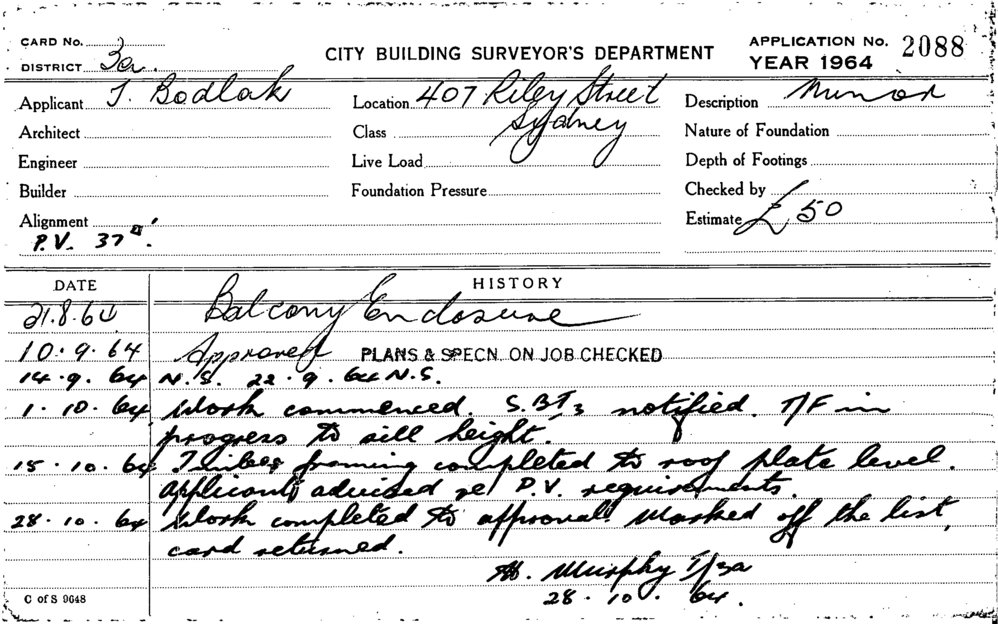 CARD No.
DISTRICT 3a.
CITY BUILDING SURVEYOR'S DEPARTMENT
APPLICATION No. 2088
YEAR 1964
Applicant J. Bodlak
Location 407 Riley Street
Sydney
Description Minor
Architect
Class
Nature of Foundation
Engineer
Live Load
Depth of Footings
Builder
Foundation Pressure
Checked by
Alignment
Estimate £ 50
P.V. 37
DATE HISTORY
21.8.64 Balcony Enclosure
10.9.64 Approved PLANS & SPECN. ON JOB CHECKED
14.9.64 N.S. 22.9.64 N.S.
1.10.64 Work commenced. notified. T/F in
progress to sill height.
15.10.64 Timber framing completed to roof plate level.
Applicant advised re P.V. requirements.
28.10.64 Work completed to approval. Marked off the list,
card returned.
Murphy
28.10.64.
C of S 9648